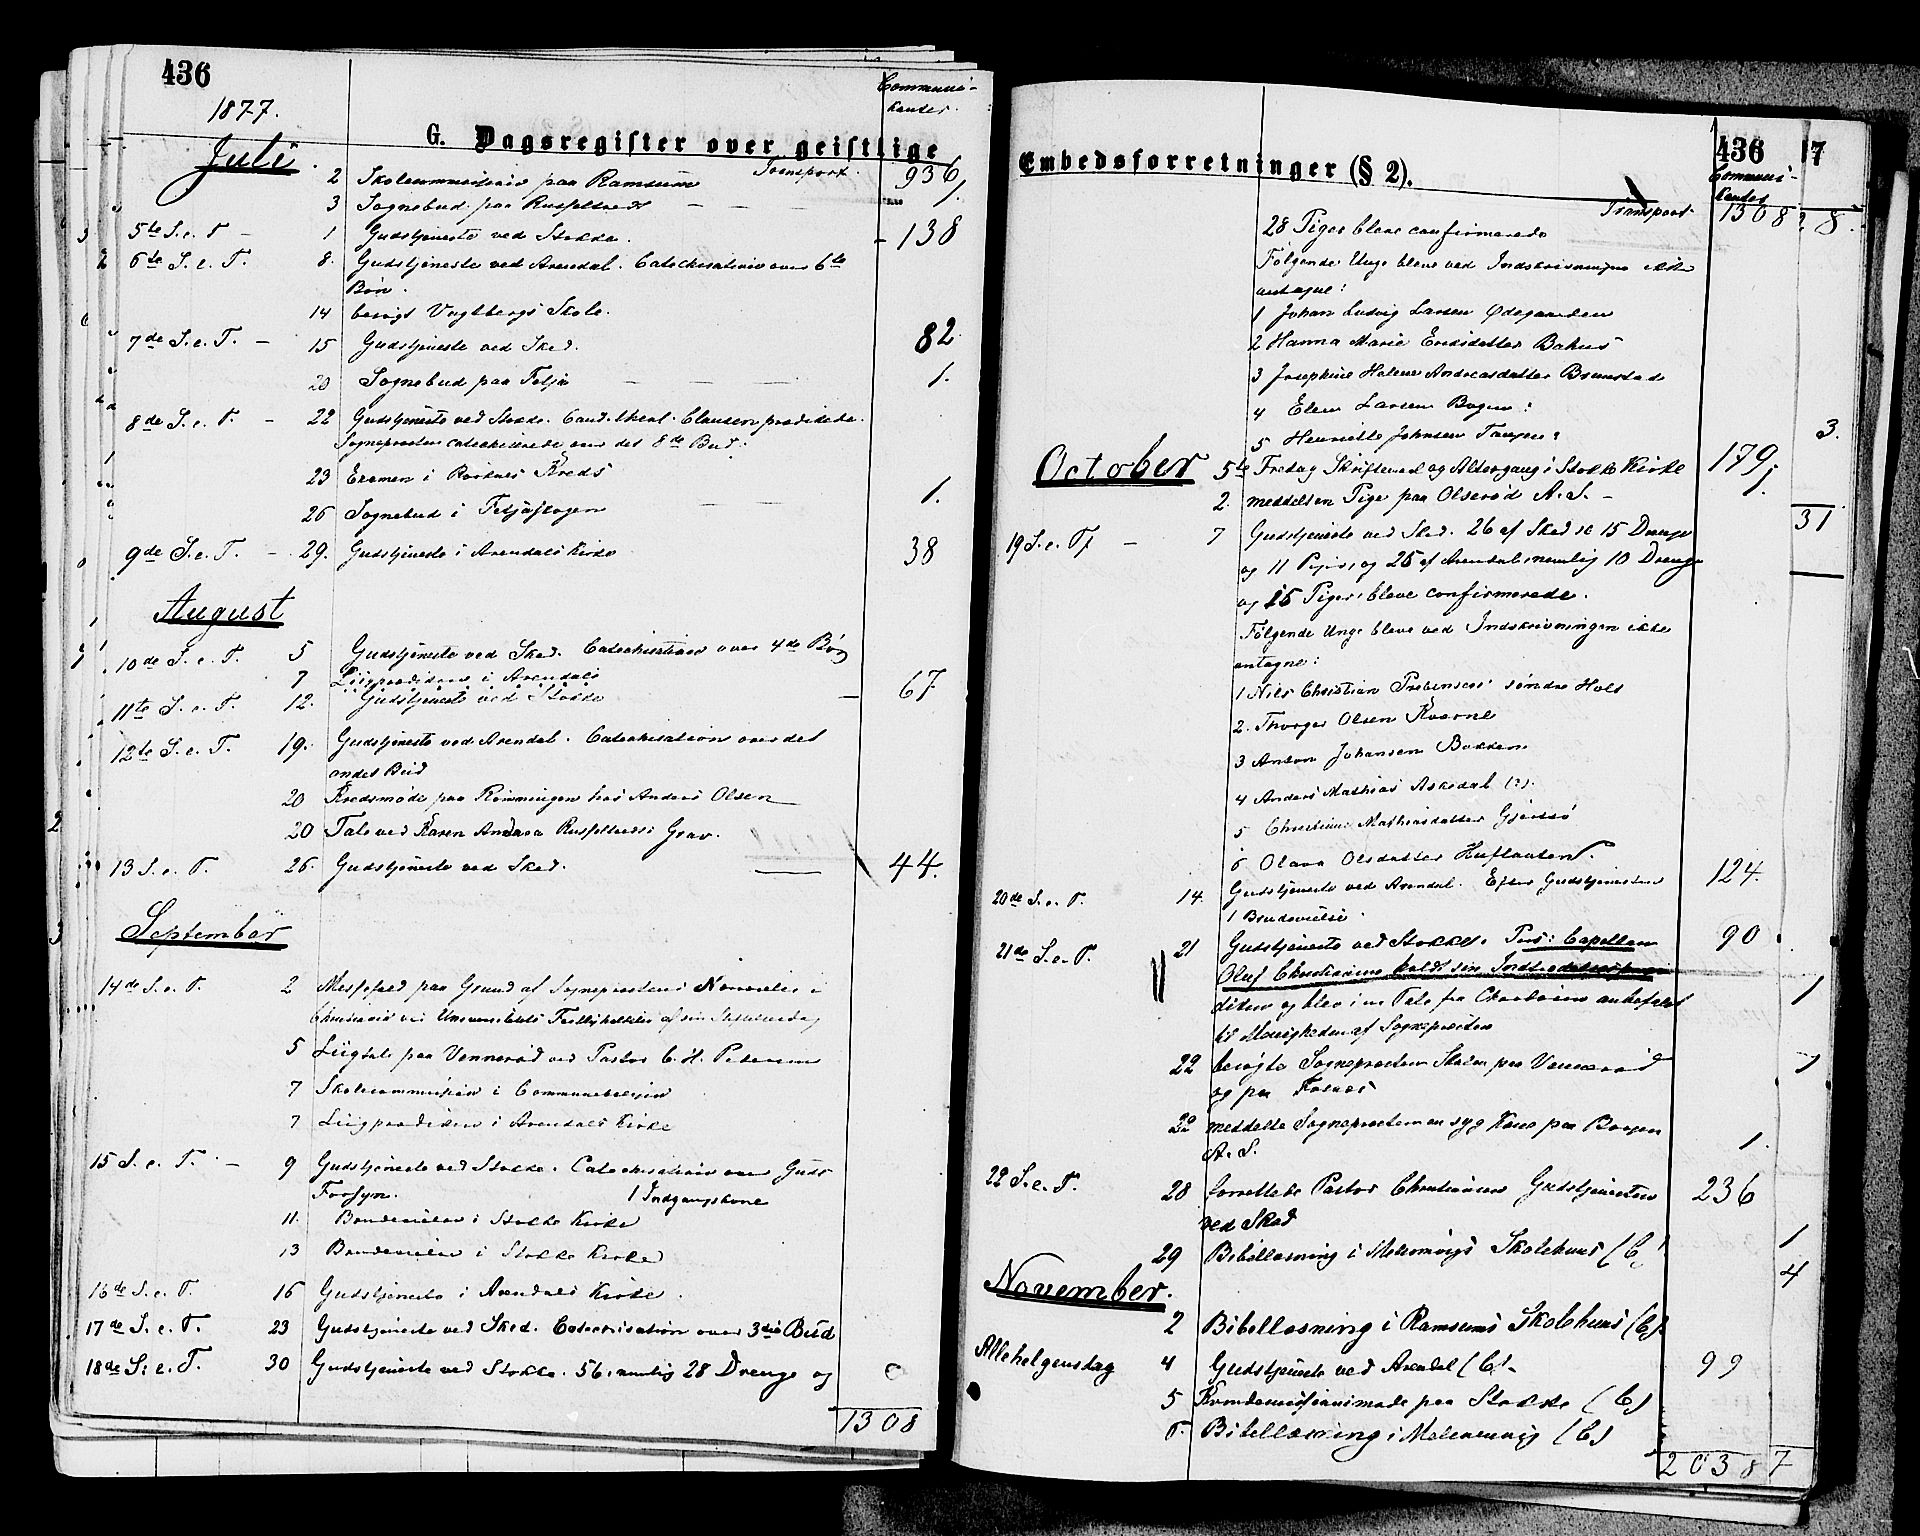 436
1877.
Communi-
kanter.
G. Dagsregister over geistlige
Juli.
2 Skolecommission paa Ramsum Transport. 936
3 Sognebud paa 1.
5te S. e. T. 1 Gudstjeneste ved Stokke. 138
6te S. e. T. 8. Gudstjeneste ved Arendal. Catechisation over 6te
Bøn.
14 besøgt Vogtbergs Skole.
7de S. e. T. 15 Gudstjeneste ved Sked. 82
20 Sognebud paa 1.
8de S. e. T. 22 Gudstjeneste ved Stokke. Cand. theol. Clausen prædikede.
Sognepresten catechiserede over det 8de Bud.
23 Examen i Kreds
26 Sognebud i 1.
9de S. e. T. 29. Gudstjeneste i Arendals Kirke 38
August
10de S. e. T. 5 Gudstjeneste ved Sked. Catechisation over 4de Bøn
7 Liigprædiken i Arendals
11te S. e. T. 12. Gudstjeneste ved Stokke 67
12te S. e. T. 19. Gudstjeneste ved Arendal. Catechisation over det
andet Bud
20 Kredsmøde paa Rømmingen hos Anders Olsen
20 Tale ved Karen Andrea Grav.
13 S. e. T. 26. Gudstjeneste ved Sked. 44.
September
14de S. e. T. 2 Messefald paa Grund af Sognepræstens Nærværelse i
Christiania ved Universitets
5 Liigtale paa Vennerød ved Pastor C. H. Petersen
7 Skolecommission i
7 Liigprædiken i Arendals Kirke
15 S. e. T. 9 Gudstjeneste ved Stokke. Catechisation over Guds
Forsyn. 1 Indgangskone
11. Brudevielse i Stokke Kirke
13 Brudevielse i Stokke Kirke
16de S. e. T. 16 Gudstjeneste i Arendals Kirke.
17de S. e. T. 23 Gudstjeneste ved Sked. Catechisation over 3die Bud
18de S. e. T. 30 Gudstjeneste ved Stokke. 56, nemlig 28 Drenge og 0
1308
436 17
Communi-
kanter
Embedsforretninger (§ 2).
Transport 1308 28.
28 Piger bleve confirmerede
Følgende Unge bleve ved Indskrivningen ikke
antagne:
1 Johan Ludvig Larsen Ødegaarden
2 Hanna Marie Bakke
3 Josephine Helene Andreasdatter Brunstad
4 Elen Larsen Bogen:
5 Henriette Johnsen Tangen: 3.
October 5te Fredag Skriftemaal og Altergang i Stokke Kirke 179,
2. meddelt en Pige paa Olserød A. S. 1.
31
19 S. e. T. 7 Gudstjeneste ved Sked. 26 af Sked sc 15 Drenge
og 11 Piger, og 25 af Arendal nemlig 10 Drenge
og 15 Piger, bleve confirmerede.
Følgende Unge bleve ved Indskrivningen ikke
antagne:
1 Nils Christian Prebensen søndre Holt
2. Thorger Olsen Kværne
3 Anton Johansen Bakken
4 Anders Mathias Askedal (?).
5 Christiane Mathiasdatter
6 Olava Olsdatter
20de S. e. T. 14. Gudstjeneste ved Arendal. Efter Gudstjenesten 124.
1 Brudevielse.
21de S. e. T. 21 Gudstjeneste ved Stokke. Pers: Capellan 90
Oluf Christiansen holdt sin Indtrædelsespræ-
diken og blev i en Tale fra Chordøren anbefalet 1
til Menigheden af Sognepresten
22 besøgte Sognepresten Skolen paa Vennerød 1
og paa
22 meddelte Sognepresten en syg Kone paa Bogen
A. S. 1.
22 S. e. T. 28 forrettede Pastor Christiansen Gudstjenesten 236
ved Sked
29 Bibellæsning i Melsomvigs Skolehuus (C) 1
November. 4
2 Bibellæsning i Ramsums Skolehuus (C).
Allehelgensdag 4 Gudstjeneste ved Arendal (C). 99
5 paa Stokke (C)
6. Bibellæsning i Melsomvig (C)
2038 7